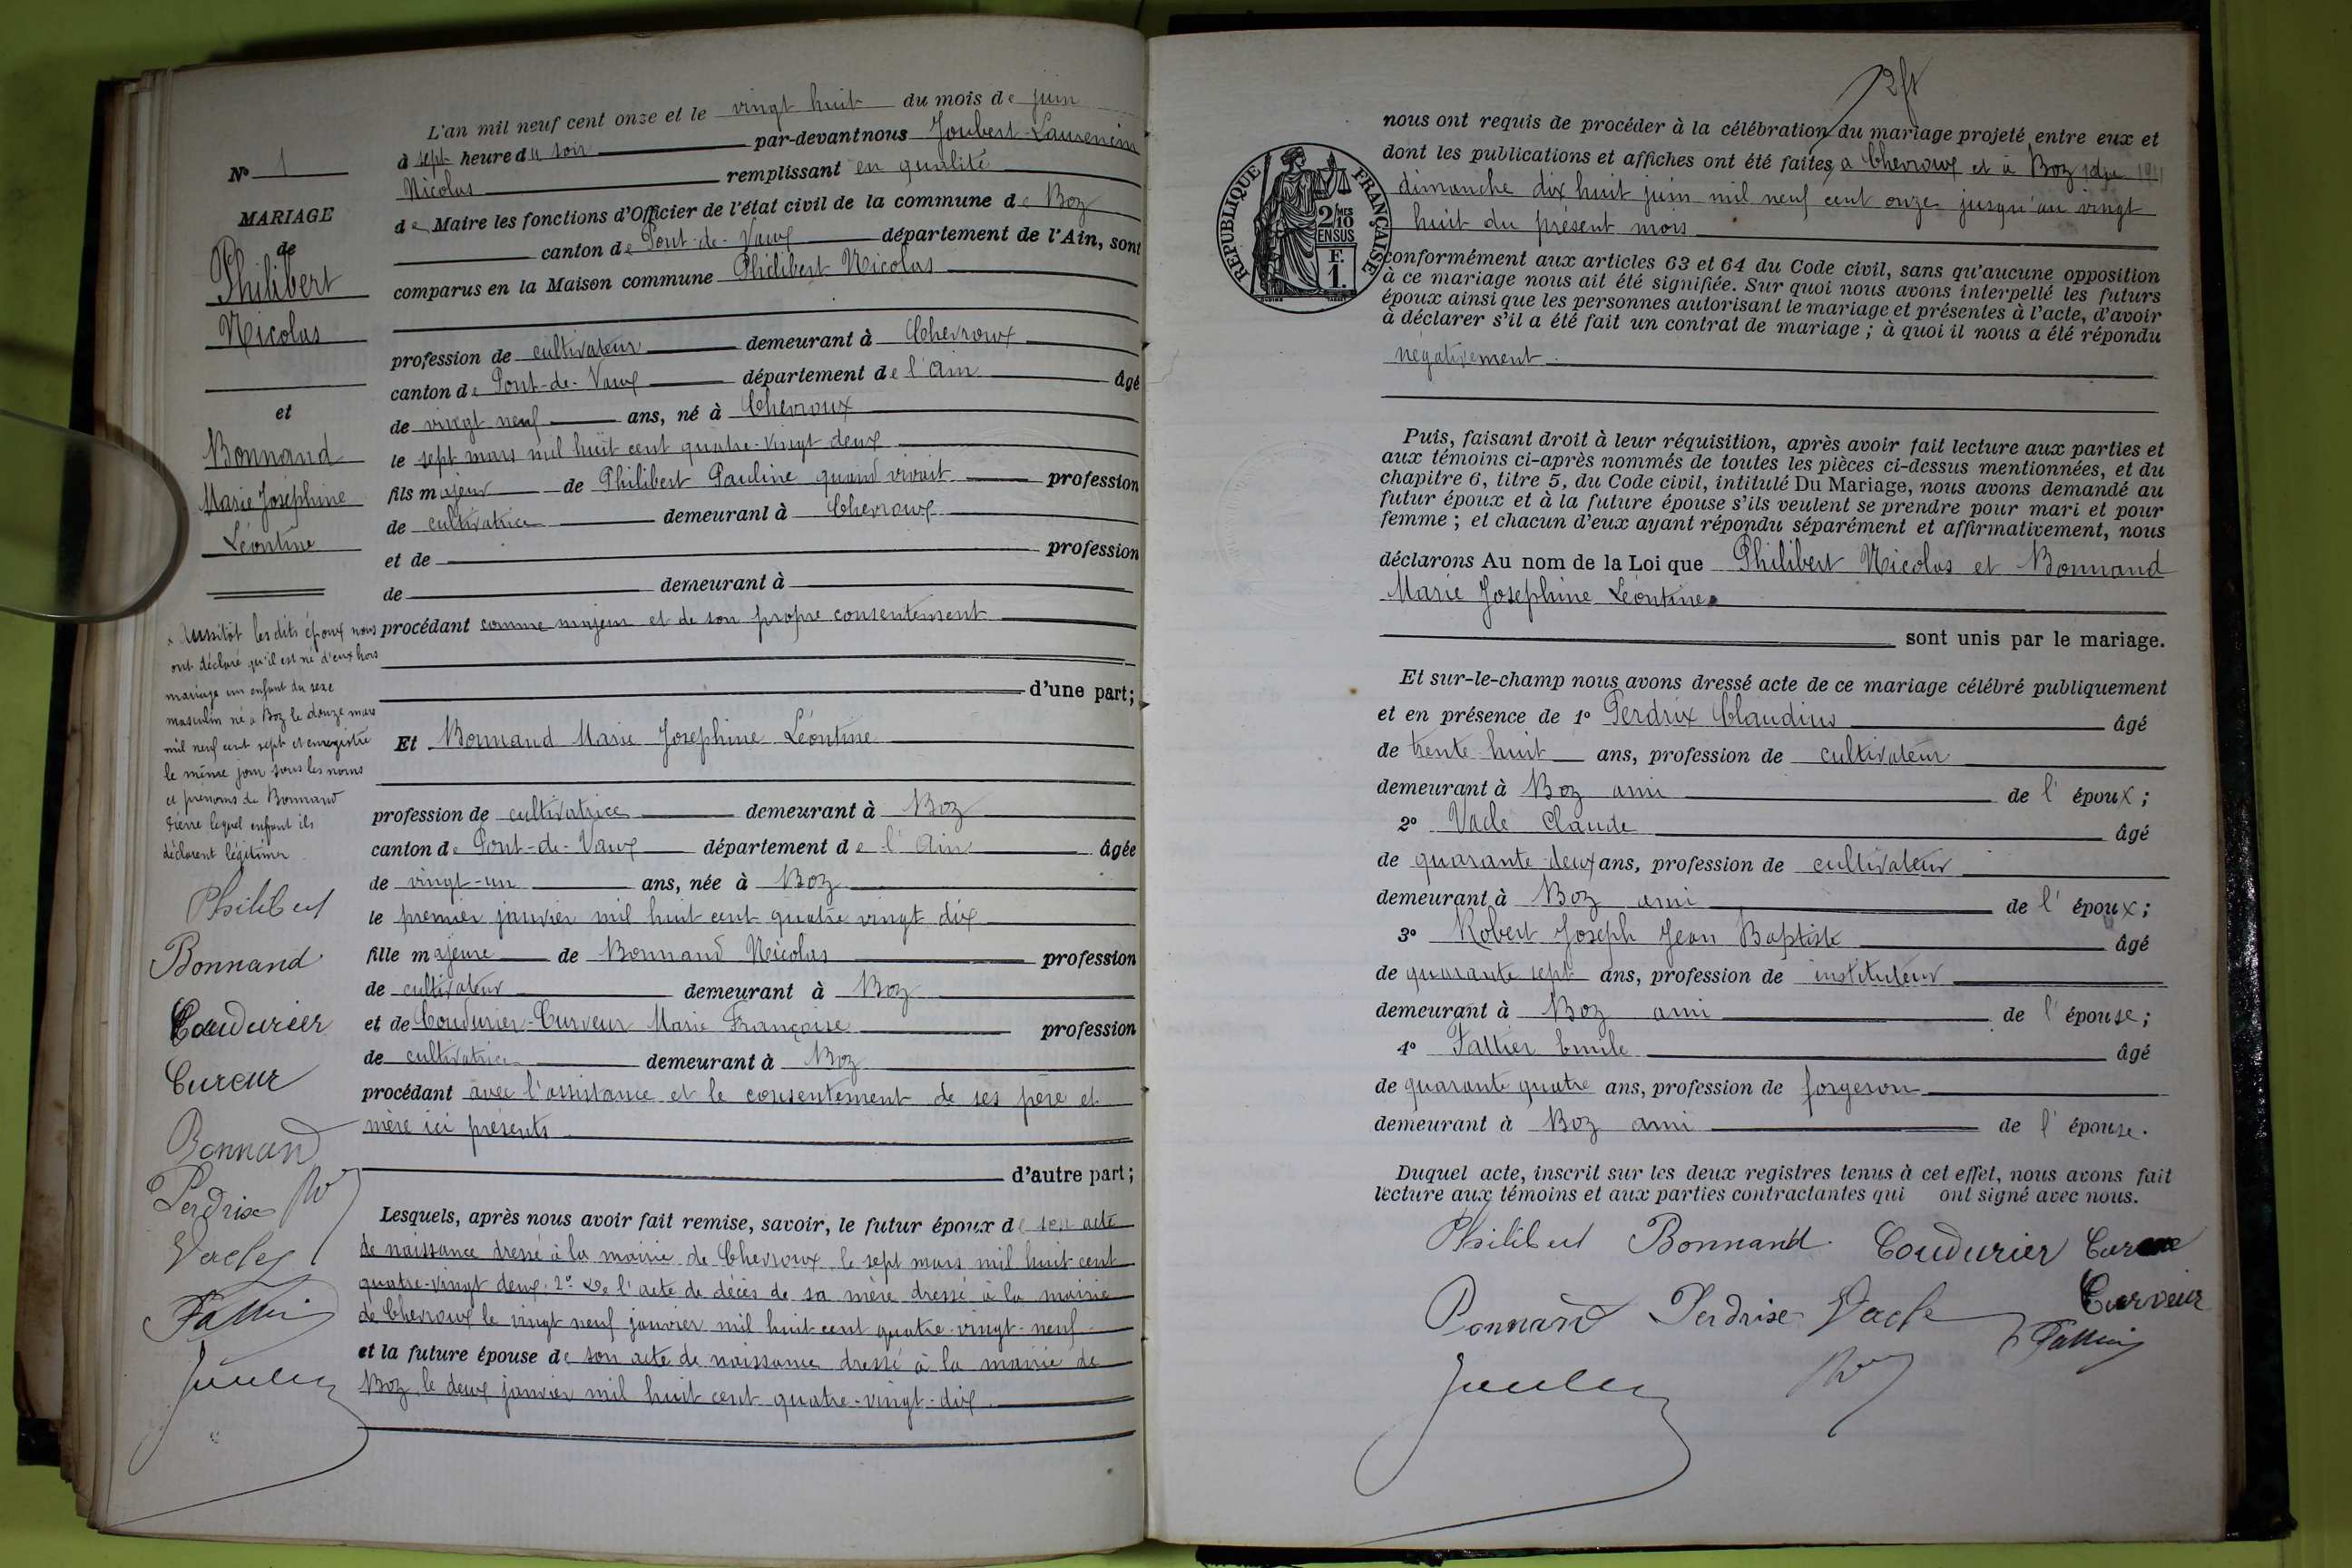 L'an mil neuf cent onze et le vingt huit du mois de juin
à sept heure du soir par-devant nous Joubert-Laurencin
Nicolas remplissant en qualité
de Maire les fonctions d'Officier de l'état civil de la commune de Boz
canton de Pont-de-Vaux département de l'Ain, sont
comparus en la Maison commune Philibert Nicolas
profession de cultivateur demeurant à Chevroux
canton de Pont-de-Vaux département de l'Ain âgé
de vingt neuf ans, né à Chevroux
le sept mars mil huit cent quatre-vingt deux
fils majeur de Philibert Pauline quand vivait profession
de cultivatrice demeurant à Chevroux
et de profession
de demeurant à
procédant comme majeur et de son propre consentement
d'une part;
Et Bonnand Marie Josephine Léontine
profession de cultivatrice demeurant à Boz
canton de Pont-de-Vaux département de l'Ain âgée
de vingt-un ans, née à Boz
le premier janvier mil huit cent quatre vingt dix
fille majeure de Bonnand Nicolas profession
de cultivateur demeurant à Boz
et de Coudurier-Curveur Marie Françoise profession
de cultivatrice demeurant à Boz
procédant avec l'assistance et le consentement de ses père et
mère ici présents
d'autre part;
Lesquels, après nous avoir fait remise, savoir, le futur époux de son acte
de naissance dressé à la mairie de Chevroux le sept mars mil huit cent
quatre-vingt deux. 2° De l'acte de décès de sa mère dressé à la mairie
de Chevroux le vingt neuf janvier mil huit cent quatre-vingt-neuf
et la future épouse de son acte de naissance dressé à la mairie de
Boz, le deux janvier mil huit cent quatre-vingt-dix
N° 1
MARIAGE
de
Philibert
Nicolas
et
Bonnand
Marie Joséphine
Léontine
x Aussitôt les dits époux nous
ont déclaré qu'il est né d'eux hors
mariage un enfant du sexe
masculin né à Boz le douze mars
mil neuf cent sept et enregistré
le même jour sous les noms
et prénoms de Bonnand
Pierre lequel enfant ils
déclarent légitimer
Philibert
Bonnand
Coudurier
Cureur
Bonnand
Perdrix
Vacle
Fattier
nous ont requis de procéder à la célébration du mariage projeté entre eux et
dont les publications et affiches ont été faites, à Chevroux et à Boz du
dimanche dix huit juin mil neuf cent onze jusqu'au vingt
huit du présent mois
conformément aux articles 63 et 64 du Code civil, sans qu'aucune opposition
à ce mariage nous ait été signifiée. Sur quoi nous avons interpellé les futurs
époux ainsi que les personnes autorisant le mariage et présentes à l'acte, d'avoir
à déclarer s'il a été fait un contrat de mariage; à quoi il nous a été répondu
négativement.
RÉPUBLIQUE FRANÇAISE
2/10 MES
EN SUS
F.
1.
Puis, faisant droit à leur réquisition, après avoir fait lecture aux parties et
aux témoins ci-après nommés de toutes les pièces ci-dessus mentionnées, et du
chapitre 6, titre 5, du Code civil, intitulé Du Mariage, nous avons demandé au
futur époux et à la future épouse s'ils veulent se prendre pour mari et pour
femme; et chacun d'eux ayant répondu séparément et affirmativement, nous
déclarons Au nom de la Loi que Philibert Nicolas et Bonnand
Marie Josephine Léontine
sont unis par le mariage.
Et sur-le-champ nous avons dressé acte de ce mariage célébré publiquement
et en présence de 1° Perdrix Claudius âgé
de trente huit ans, profession de cultivateur
demeurant à Boz ami de l'époux;
2° Vacle Claude âgé
de quarante-deux ans, profession de cultivateur
demeurant à Boz ami de l'époux;
3° Robert Joseph Jean Baptiste âgé
de quarante sept ans, profession de instituteur
demeurant à Boz ami de l'épouse;
4° Fattier Emile âgé
de quarante quatre ans, profession de forgeron
demeurant à Boz ami de l'épouse.
Duquel acte, inscrit sur les deux registres tenus à cet effet, nous avons fait
lecture aux témoins et aux parties contractantes qui ont signé avec nous.
Philibert Bonnand Coudurier
Curveur
Bonnand Perdrix Vacle
Fattier